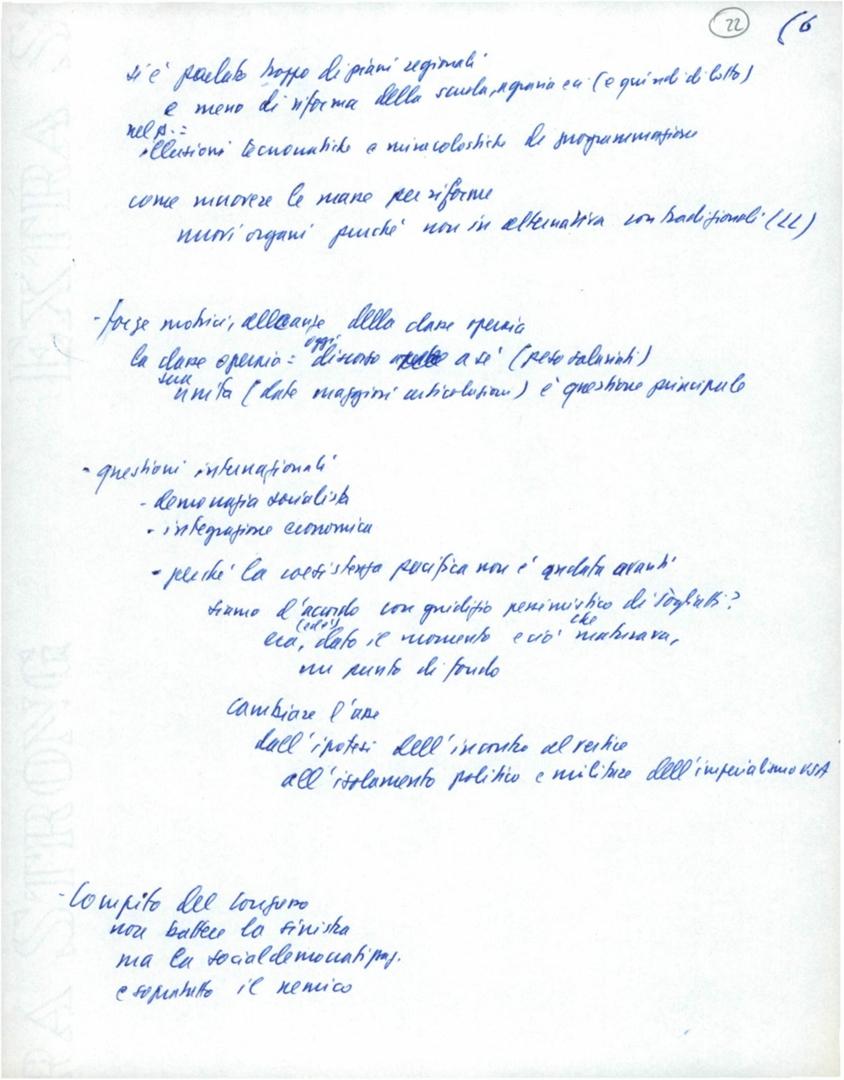 22 (6
si è parlato troppo di piani regionali
e meno di riforma della scuola, agraria ecc (e quindi di lotta)
nel P.:
illusioni tecnocratiche e miracolistiche di programmazione
come muovere le masse per riforme
nuovi organi purché non in alternativa con tradizionali (LL)
- forze motrici, alleanze della classe operaia
la classe operaia: oggi discorso a sé (peso salariati)
sua unità (date maggiori articolazioni) è questione principale
- questioni internazionali
- democrazia socialista
- integrazione economica
- perché la coesistenza pacifica non è andata avanti
siamo d'accordo con giudizio pessimistico di Togliatti?
era, (ed è) dato il momento e ciò che maturava,
un punto di fondo
cambiare l'asse
dall'ipotesi dell'incontro al vertice
all'isolamento politico e militare dell'imperialismo USA
- Compito del congresso
non battere la sinistra
ma la socialdemocratizzaz.
e soprattutto il nemico
EXTRA S
EXTRA STRONG